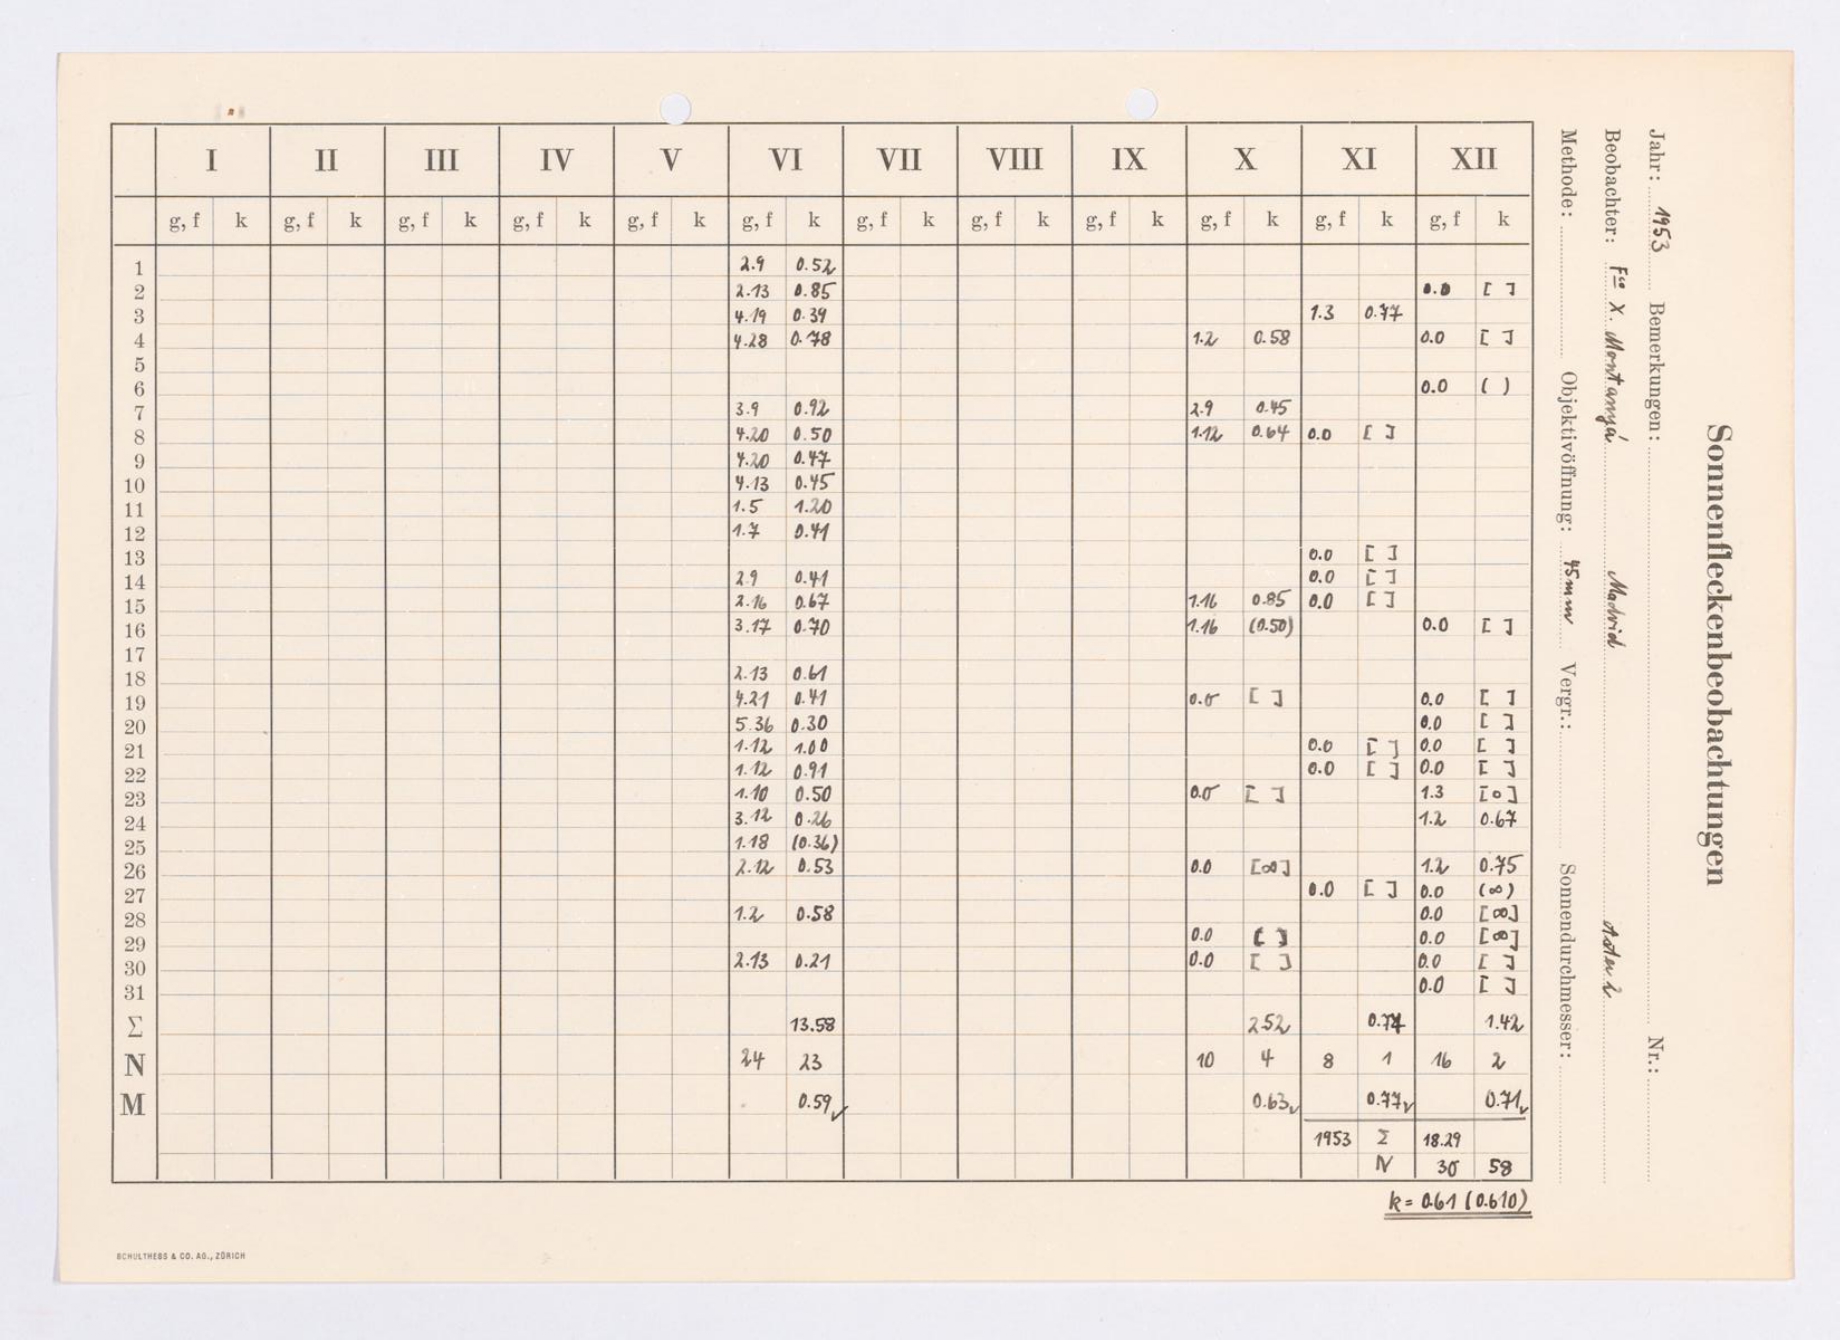 Sonnenfleckenbeobachtungen
Jahr: 1953 Bemerkungen: Nr.:
Beobachter: Fco X. Montanyá Madrid
Methode: Objektivöffnung: 45mm Vergr.: Sonnendurchmesser:
I II III IV V VI VII VIII IX X XI XII
g, f k g, f k g, f k g, f k g, f k g, f k g, f k g, f k g, f k g, f k g, f k g, f k
1 2.9 0.52
2 2.13 0.85 0.0 [ ]
3 4.19 0.39 1.3 0.77
4 4.28 0.78 1.2 0.58 0.0 [ ]
5
6 0.0 ( )
7 3.9 0.92 2.9 0.45
8 4.20 0.50 1.12 0.64 0.0 [ ]
9 4.20 0.47
10 4.13 0.45
11 1.5 1.20
12 1.7 0.41
13 0.0 [ ]
14 2.9 0.41 0.0 [ ]
15 2.16 0.67 1.16 0.85 0.0 [ ]
16 3.17 0.70 1.16 (0.50) 0.0 [ ]
17
18 2.13 0.61
19 4.21 0.41 0.0 [ ] 0.0 [ ]
20 5.36 0.30 0.0 [ ]
21 1.12 1.00 0.0 [ ] 0.0 [ ]
22 1.12 0.91 0.0 [ ] 0.0 [ ]
23 1.10 0.50 0.0 [ ] 1.3 [0]
24 3.12 0.26 1.2 0.67
25 1.18 (0.36)
26 2.12 0.53 0.0 [∞] 1.2 0.75
27 0.0 [ ] 0.0 (∞)
28 1.2 0.58 0.0 [∞]
29 0.0 [ ] 0.0 [∞]
30 2.13 0.21 0.0 [ ] 0.0 [ ]
31 0.0 [ ]
Σ 13.58 2.52 1.42
N 24 23 10 4 8 1 16 2
M 0.59✓ 0.63✓ 0.77✓ 0.71✓
1953 Σ 18.29
N 30 58
k = 0.61 (0.610)
SCHULTHESS & CO. AG., ZÜRICH